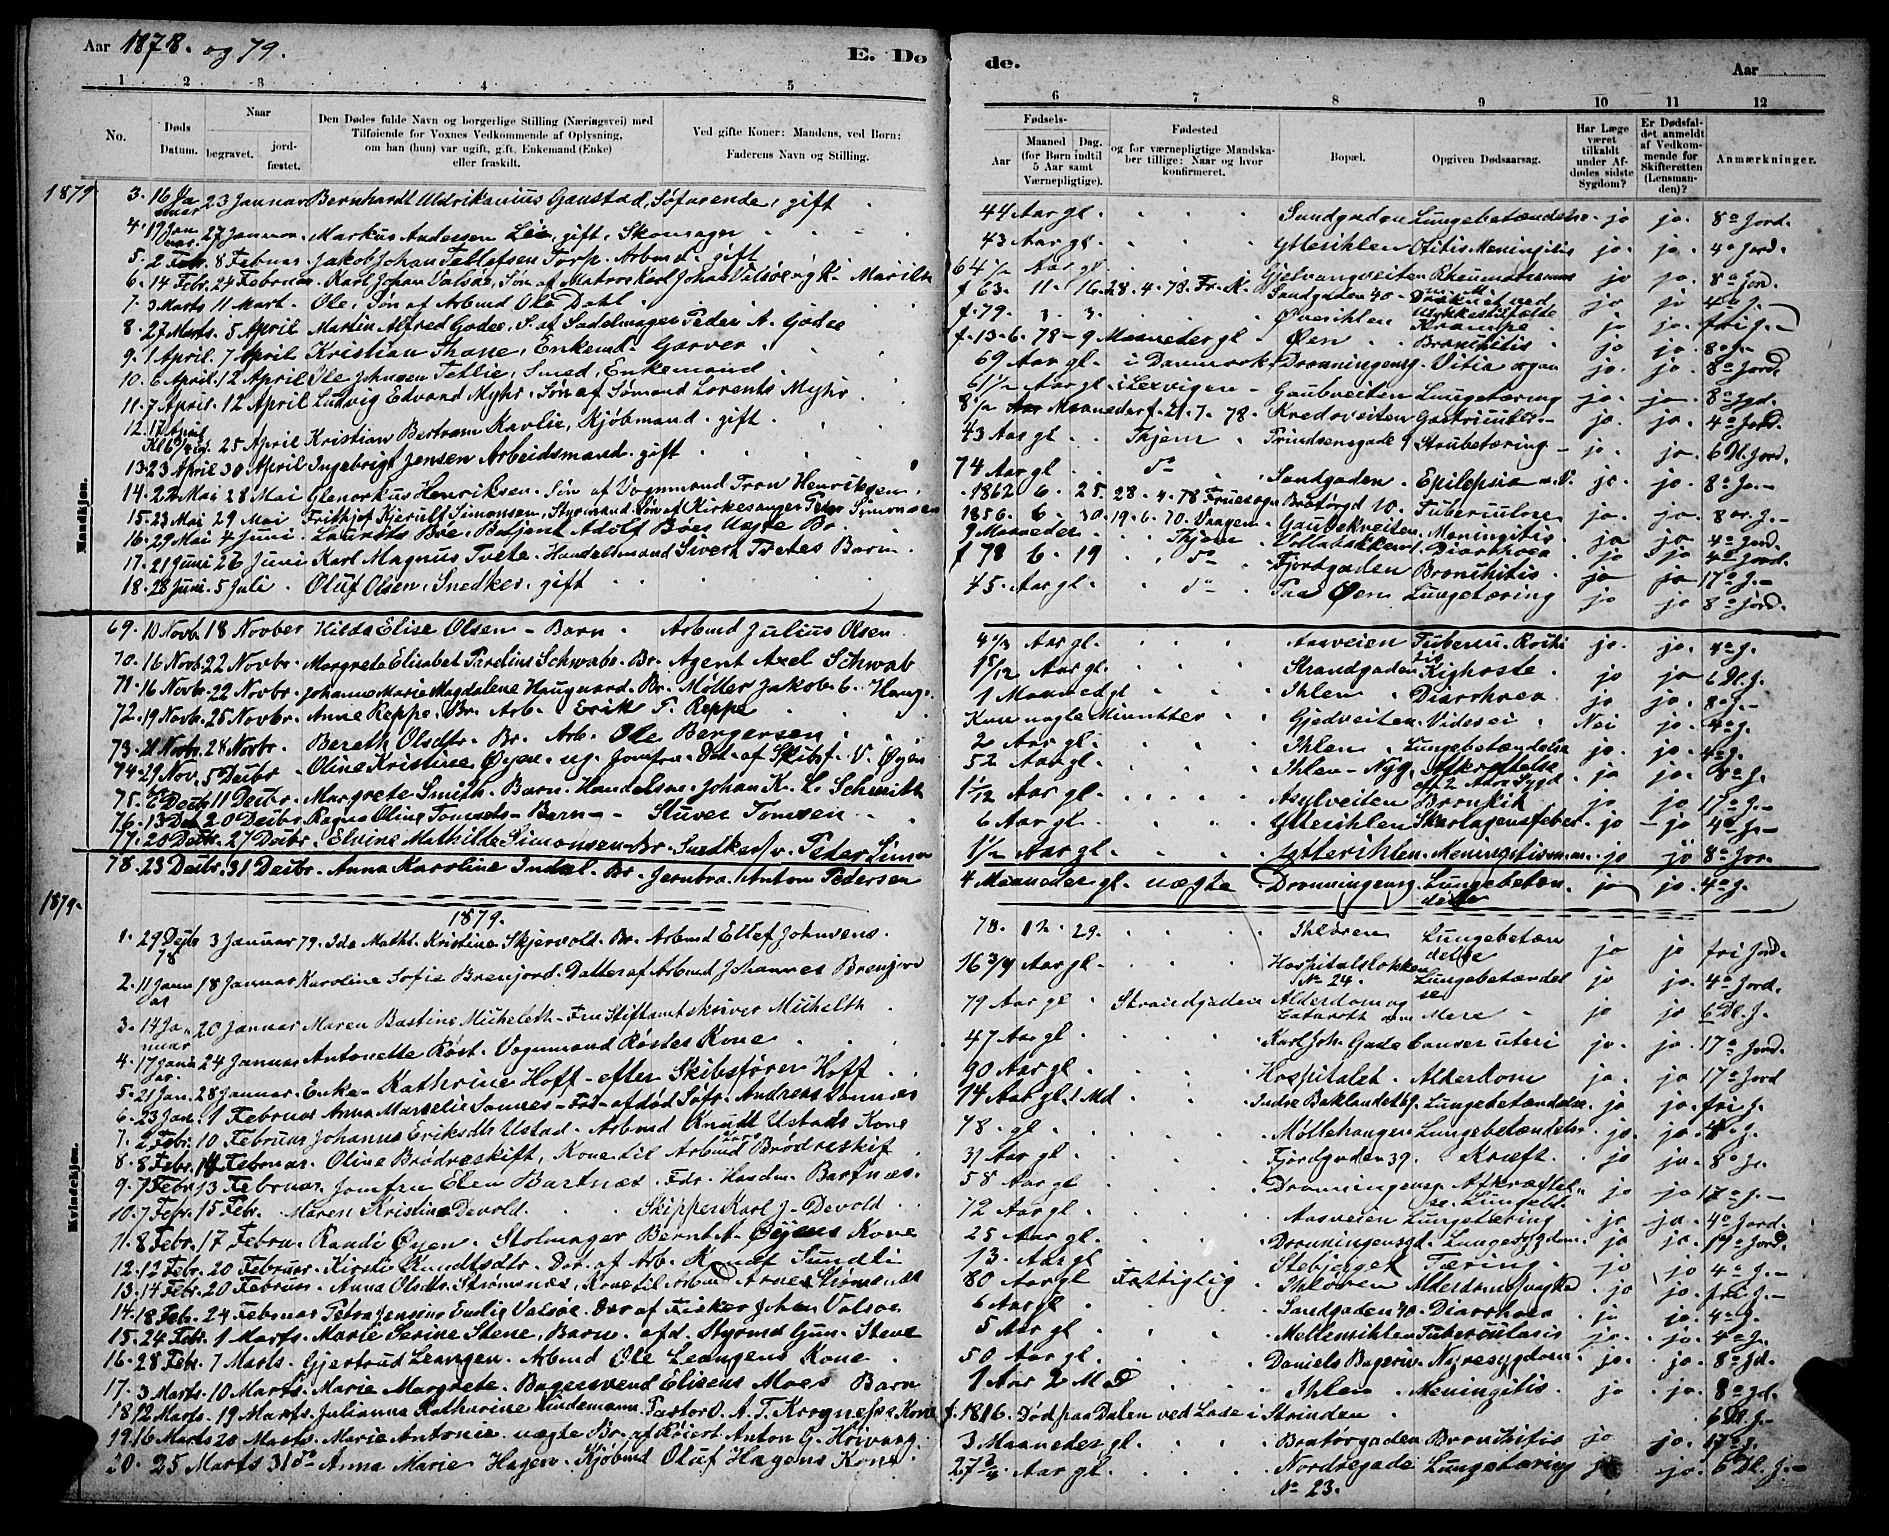 Aar 1878. og 79.
E. Do
de.
Aar
1 2 3 4 5
6 7 8 9 10 11 12
No.
Døds Datum.
Naar
begravet.
jordfæstet.
Den Dødes fulde Navn og borgerlige Stilling (Næringsvei) med
Tilføiende for Voxnes Vedkommende af Oplysning,
om han (hun) var ugift, gift, Enkemand (Enke)
eller fraskilt.
Ved gifte Koner: Mandens, ved Børn:
Faderens Navn og Stilling.
Fødsels-
Aar
Maaned Dag.
(for Børn indtil
5 Aar samt
Værnepligtige).
Fødested
og for værnepligtige Mandska-
ber tillige: Naar og hvor
konfirmeret.
Bopæl.
Opgiven Dødsaarsag.
Har Læge
været
tilkaldt
under Af-
dødes sidste
Sygdom?
Er Dødsfal-
det anmeldt
af Vedkom-
mende for
Skifteretten
(Lensman-
den)?
Anmærkninger.
Mandkjøn.
1879
3. 16 Januar 23 Januar Bernhardt Gaustad, Søfarende, gift 44 Aar gl. Sandgaden Lungebetændelse jo jo. 8 a Jord.
4. 19 Januar 27 Januar Markus Andersen Lie, gift, Skomager 43 Aar gl. Ytterihlen Otitis Meningitis jo. jo. 4 a Jord.
5. 2 Febr. 8 Februar Jakob Johan Tellefsen Torp. Arbmd. gift 64 1/2 Aar gl. Gjelvangveiten Rheumatismus jo jo. 8 a Jord.
6. 14 Febr. 24 Februar Karl Johan Valsøe, Søn af Matros Karl Johan Valsøe f. 63. 11. 16. 28. 4. 78. Fr. K. Sandgaden 40 Druknet ved Ulykkestilfælde jo jo 4 a J.
7. 3 Marts 11 Mart. Ole, Søn af Arbmd Ole Dahl f. 79. 3. 3. Øverihlen Krampe jo jo. fri J.
8. 27 Marts. 5 April Martin Alfred Godee, S. af Sadelmager Peder A. Godee f. 13. 6. 78 - 9 Maaneder gl Øen Bronchitis jo jo. 8 a J.
9. 1 April. 7 April Kristian Thane, Enkemd. Garver 69 Aar gl. i Danmark Dronningensg. Vitia organ jo. jo. 8 a Jord.
10. 6 April. 12 April Ole Johnsen Tetlie, Smed, Enkemand 61 1/2 Aar gl. i Lexvigen Gaubveiten Lungetæring jo. jo 8 a Jord.
11. 7 April. 12 April Ludvig Edvard Myhr. Søn af Sømand Lorents Myhr 8 1/2 Maaneder f. 21. 7. 78. Kredsveiten jo. jo. 4 a Jord.
12. 17 April 25 April Kristian Bertram Kavlie, Kjøbmand. gift 43 Aar gl. Thjem Prindsensgade 9 Strubetæring jo. jo. 6 Dl. Jord.
13. 23 April 30 April Ingebrigt Jensen Arbeidsmand. gift 74 Aar gl do Sandgaden Epilepsia jo. jo. 8 a Jo.
14. 22 Mai 28 Mai Henriksen. Søn af Vognmand Tron Henriksen 1862 6. 25. 28. 4. 78 Bratørgd 10. Tuberculose jo. jo. 8 or. J.
15. 23 Mai 29 Mai Frithjof Kjerulf Simonsen, Styrmand. Søn af Kirkesanger Peder Simonsen 1856. 6. 30. 19. 6. 70. Vaagen Gaubekveiten Meningitis jo jo 4 a Jord.
16. 29 Mai 4 Juni Laurits Boe, Betjent Adolf Boes Uægte Br. 9 Maaneder Thjem Kollabakken Diarrhoea jo jo 4 a Jord.
17. 21 Juni 26 Juni Karl Magnus Tvete. Handelsmand Sivert Tvetes Barn f 78 6. 19 do Fjordgaden Bronchitis jo jo 17 a J.
18. 28 Juni. 5 Juli. Oluf Olsen, Snedker, gift 45. Aar gl. do Paa Øen Lungetæring jo jo. 8 a Jord.
69. 10 Novb. 18 Novber Hilda Elise Olsen - Barn. Arbmd Julius Olsen 4 1/3 Aar gl. Aasveien jo. jo. 4 a J.
70. 16 Novb. 22 Novbr. Margrete Elisabet Schwabe. Br. Agent Axel Schwab 1 5/12 Aar gl. Strandgaden Kighoste jo jo 6 Dl. J.
71. 16 Novb. 22 Novbr. Johanne Marie Magdalene Haugaard. Br. Møller Jakob C. Haug. 1 Maaned gl Ihlen Diarrhoea jo jo. 8 a J.
72. 19 Novb. 25 Novbr. Anne Reppe. Br. Arb. Erik P. Reppe Kun nogle Minutter Gjedveiten Vides ei Nei jo. 4 a J.
73. 21 Novbr. 28 Novbr. Bereth Olsdtr. Br. Arb. Ole Bergersen 2 Aar gl. Ihlen Lungebetændelse jo. jo. 4 a J.
74. 29 Nov. 5 Decbr Oline Kristine Øyen. ug. Jomfru. Dat. af Skibsf. V. Øyen 52 Aar gl. Ihlen - Nyg. Afkræftelse eft 2 Aars Sygd. jo jo. 8 a J.
75. 6 Decbr 11 Decbr. Margrete Smith. Barn. Handelsm. Johan K. L. Schmith 1 1/12 Aar gl. Asylveiten Bronkit jo. jo. 17 a J.
76. 13 Dec 20 Decbr Ragna Oline Tomsets - Barn - Stuver Tomsen 6 Aar gl. Ytterihlen Skarlagensfeber jo jo 4 a J.
77. 20 Decbr. 27 Decbr. Elvine Mathilde Simonsen - Br. Snedkersv. Peder Simon 1 1/2 Aar gl. Ytterihlen. Meningitis jo jo 8 a Jor.
78. 23 Decbr. 31 Decbr. Anna Karoline Indal. Br. Jernba. Anton Pedersen 4 Maaneder gl. uægte Dronningensg. Lungebetændelse jo jo. 4 a J.
1879.
Kvindekjøn.
1879.
1. 29 Decbr 78 3 Januar 79. Ida Math. Kristine Skjervold. Br. Arbmd Ellef Johnsens. 78. 12. 29. Ihløren Lungebetændelse jo jo fri Jord.
2. 11 Januar 18 Januar Karoline Sofie Brenjord. Datter af Arbmd Johannes Brenjord 16 3/4 Aar gl. Hospitalsløkken No 24. Lungebetændelse jo jo. 4 a Jord.
3. 14 Januar 20 Januar Maren Bastine Micheleth. Fru Stiftamtskriver Michelth 79 Aar gl Strandgaden Alderdom og mere jo jo 6 Dl. J.
4. 17 Januar 24 Januar Antonette Røst. Vognmand Røstes Kone 47 Aar gl Karl Joh. Gade Cancer uteri jo. jo. 17 a Jord.
5. 21 Jan. 28 Januar Enke - Kathrine Hoff - efter Skibsfører Hoff 90 Aar gl. Hospitalet. Alderdom jo. jo 17 a Jord
6. 23 Jan. 1 Februar Anna Marselie Sannes - For. afdød Søfr. Andreas Sannes 14 Aar gl. 1 Md Indre Baklandet Lungebetændelse jo jo fri J.
7. Febr. 10 Februar Johanna Eriksdtr Ustad. Arbmd Knudt Ustads Kone 78. gl. Møllehaugen Lungebetændelse jo. jo. 4 a J.
8. 8 Febr. 14 Februar. Oline Brødreskift, Kone til Arbmd Lars Brødreskif 31 Aar gl. Fjordgaden 39. Kræft. jo jo. 8 a J.
9. 7 Febr. 13 Februar. Jomfru Elen Bartnæs. Fdr. Handm. Bartnæs. 58 Aar gl. Dronningensg. Afkræftelse. jo jo. 17 a J.
10. 7 Febr. 15 Febr. Maren Kristine Devold. Skipper Karl J. Devold 72 Aar gl. Aasveien Lungetæring jo jo. 4 a Jord.
11. 8 Febr. 17 Febru. Randi Øyen. Stolmager Bernt A. Øyens Kone 25 Aar gl. Dronningensgd. Lungesygdom. jo jo. 17 a Jord.
12. 12 Febr. 20 Februar. Kirsti Knudtsdtr. Dtr. af Arb. Knut Sundli 13. Aar gl Stebjerget Tæring. jo jo 4 a J.
13. 14 Febr. 20 Februar. Anna Olsdtr Strømsnes, Kone til Arbmd Arnes Strømsnæs 80 Aar gl Fattiglig Ihløren Alderdomssvaghed jo jo. fri J.
14. 18 Feb. 24 Februar Petra Jensine Emilie Valsøe. Dtr af Fisker Johan Valsøe 6 Aar gl. Sandgaden 40 Diarrhoea jo jo. 4 a J.
15. 24 Febr. 1 Marts. Marie Serine Stene, Barn. afd. Styrmd Gun. Stene 5 Aar gl Mellemihlen Tuberculosis jo. jo. 4 a J.
16. 28 Febr. 7 Marts. Gjertrud Leangen. Arbmd Ole Leangens Kone 50 Aar gl. Daniels Bageriv. Nyresygdom. jo. jo. 8 a Jd.
17. 3 Marts. 10 Marts. Marie Margrete. Bagersvend Elisens Moes Barn 1 Aar 2 Md Ihlen Meningitis. jo jo. 8 a Jd.
18. 12 Marts. 19 Marts. Julianna Katharine Lindemann. Pastor O. A. T. Krognes's Kone f. 1816. Død paa Dalen ved Lade i Strinden 6 Dl. J.
19. 16 Marts 20 Marts. Marie Antonie. uægte Br. af Anton G. Høivang. 3 Maaneder gl. Bratørgaden Bronchitis jo jo. 17 a J.
20. 25 Marts 31 do Anna Marie Hagen. Kjøbmd Oluf Hagens Kone. 27 3/4 Aar gl. Nordregade No 23. Lungetæring jo jo. 6 Dl. J.